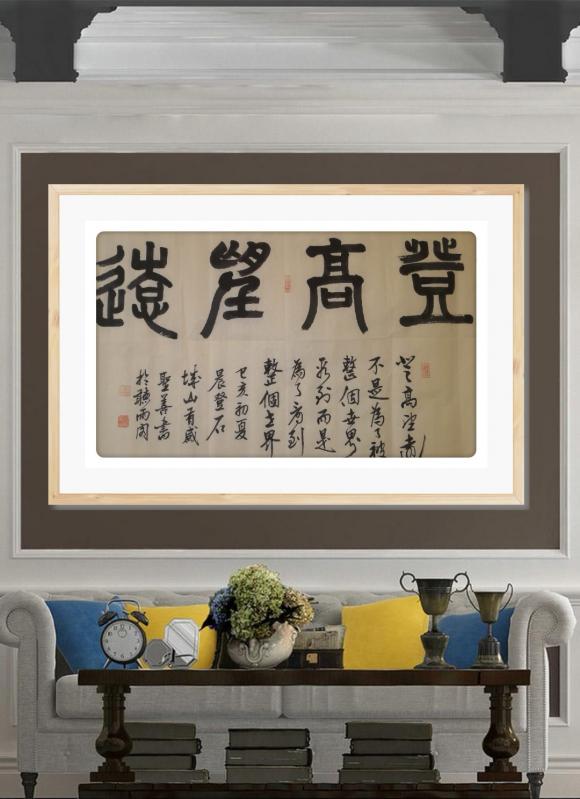 登高望遠
登高望遠
不是為了被
整個世界
看到而是
為了看到
整個世界
己亥初夏
晨登石
城山有感
聖善書
於聽雨閣